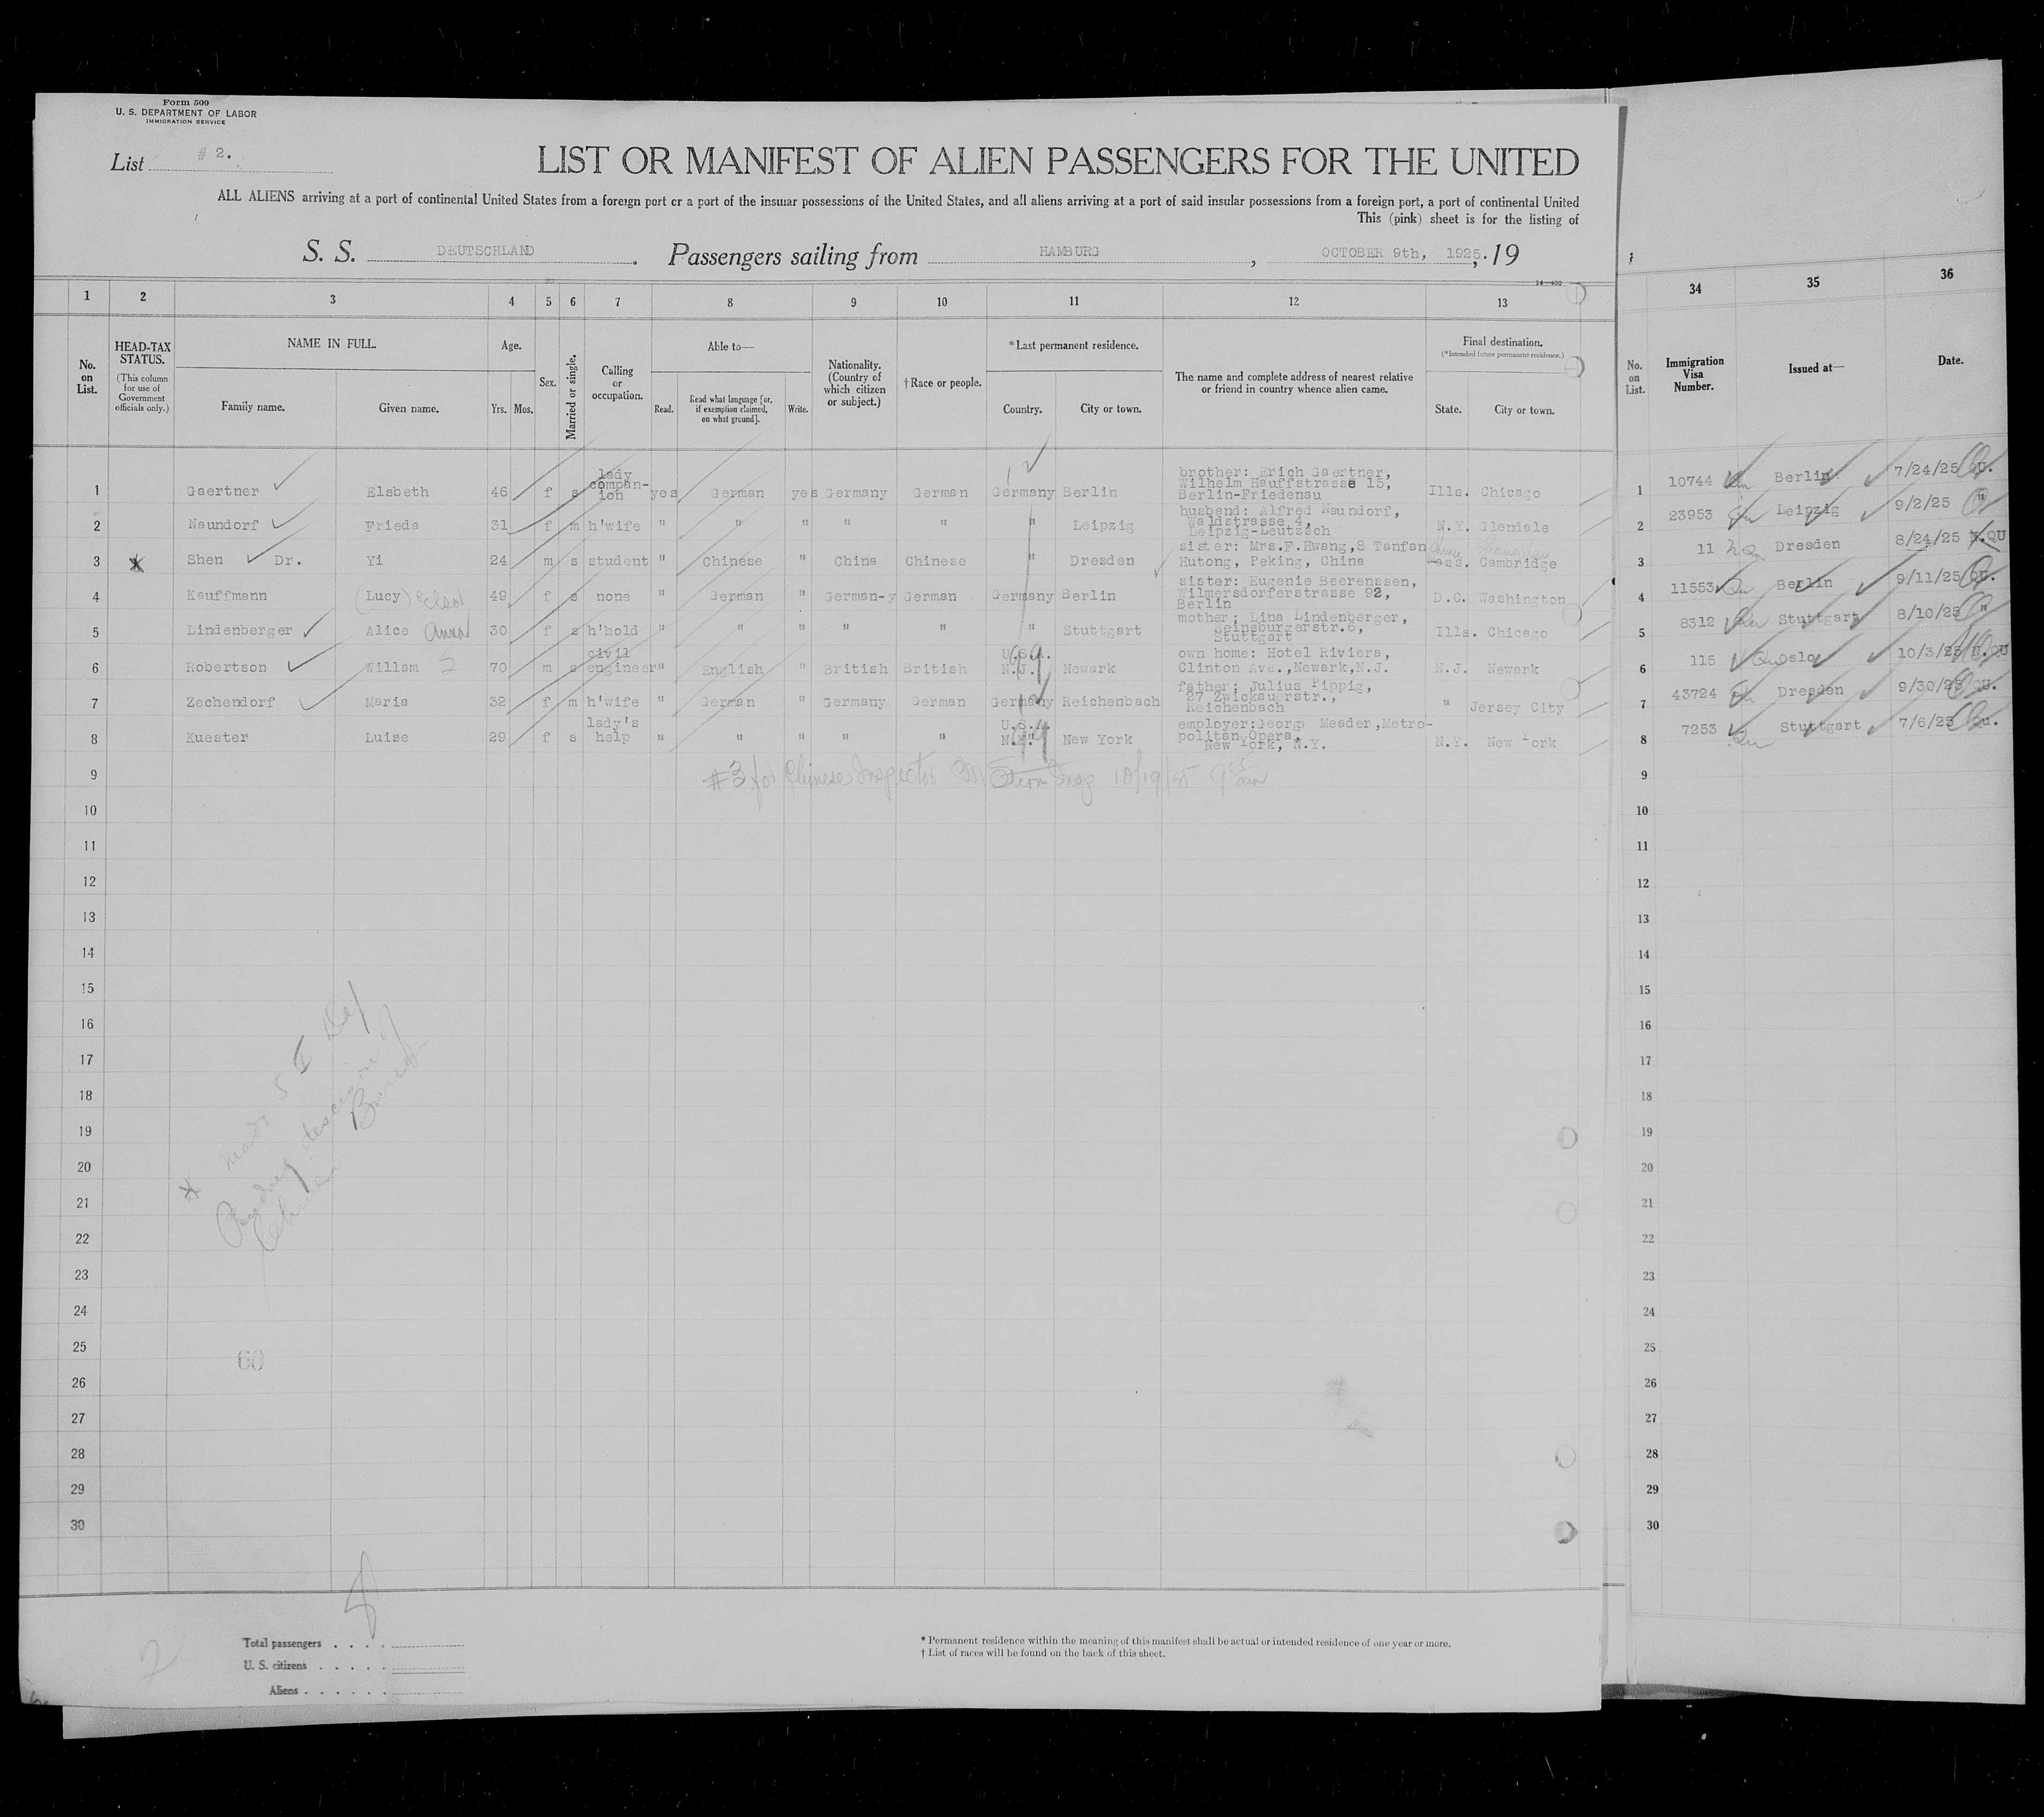 Form 500
U. S. DEPARTMENT OF LABOR
IMMIGRATION SERVICE
List # 2.
LIST OR MANIFEST OF ALIEN PASSENGERS FOR THE UNITED
ALL ALIENS arriving at a port of continental United States from a foreign port or a port of the insular possessions of the United States, and all aliens arriving at a port of said insular possessions from a foreign port, a port of continental United
This (pink) sheet is for the listing of
S. S. DEUTSCHLAND. Passengers sailing from HAMBURG, OCTOBER 9th, 1925., 19
1 2 3 4 5 6 7 8 9 10 11 12 13 34 35 36
No. on List.
HEAD-TAX STATUS.
(This column for use of Government officials only.)
NAME IN FULL.
Family name. Given name.
Age.
Yrs. Mos.
Sex.
Married or single.
Calling or occupation.
Able to—
Read. Read what language [or, if exemption claimed, on what ground]. Write.
Nationality. (Country of which citizen or subject.)
† Race or people.
* Last permanent residence.
Country. City or town.
The name and complete address of nearest relative or friend in country whence alien came.
Final destination.
(* Intended future permanent residence.)
State. City or town.
No. on List.
Immigration Visa Number.
Issued at—
Date.
1 Gaertner Elsbeth 46 f s lady compan-ion yes German yes Germany German Germany Berlin brother: Erich Gaertner, Wilhelm Hauffstrasse 15, Berlin-Friedenau Ills. Chicago 1 10744 Berlin 7/24/25 QU.
2 Naundorf Frieda 31 f m h'wife " " " " " " Leipzig husband: Alfred Naundorf, Waldstrasse 4, Leipzig-Leutzsch N.Y. Glendale 2 23953 Leipzig 9/2/25 "
3 Shen Dr. Yi 24 m s student " Chinese " China Chinese " Dresden sister: Mrs.F.Hwang,8 Tanfan Hutong, Peking, China Mass. Cambridge China Shanghai 3 11 Dresden 8/24/25 N.QU
4 Kauffmann (Lucy) Elsa 49 f s none " German " German-y German Germany Berlin sister: Eugenie Beerenssen, Wilmersdorferstrasse 92, Berlin D.C. Washington 4 11553 Berlin 9/11/25 QU.
5 Lindenberger Alice Anna 30 f s h'hold " " " " " " Stuttgart mother: Lina Lindenberger, Stuttgart Ills. Chicago 5 8312 Stuttgart 8/10/25 "
6 Robertson Willam 70 m s civil engineer " English " British British U.S.A. N.J. Newark own home: Hotel Riviera, Clinton Ave.,Newark,N.J. N.J. Newark 6 115 Oslo 10/3/25 N.QU
7 Zechendorf Maria 32 f m h'wife " German " Germany German Germany Reichenbach father: Julius Pippig, 27 Zwickauerstr., Reichenbach " Jersey City 7 43724 Dresden 9/30/25 QU.
8 Kuester Luise 29 f s lady's help " " " " " U.S.A. N.Y. New York employer:Georg Meader,Metro-politan Opera, New York, N.Y. N.Y. New York 8 7253 Stuttgart 7/6/25 Qu.
#3 for Chinese Inspector 10/19/25 9 15 am
9 9
10 10
11 11
12 12
13 13
14 14
15 15
16 16
17 17
18 18
19 19
20 20
21 21
22 22
23 23
24 24
25 25
26 26
27 27
28 28
29 29
30 30
Pending decision of
Chinese Bureau
60
8
2
Total passengers
U. S. citizens
Aliens
* Permanent residence within the meaning of this manifest shall be actual or intended residence of one year or more.
† List of races will be found on the back of this sheet.